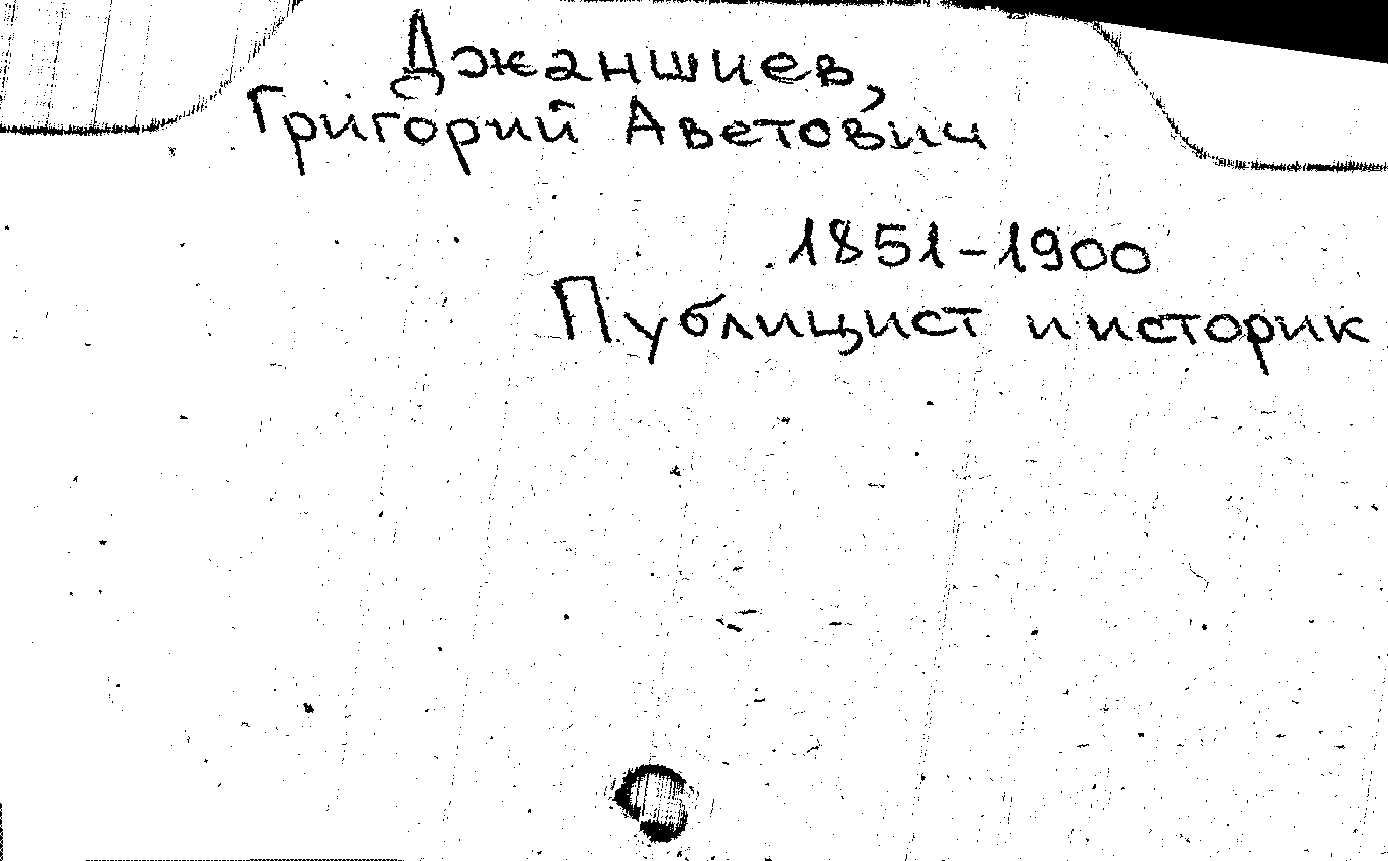 Джаншиев,
Григорий Аветович
1851-1900
Публицист и историк